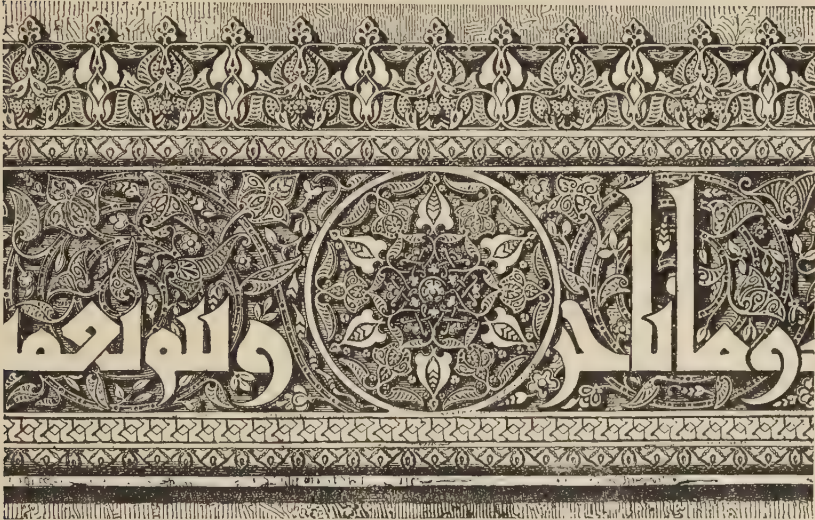 وما تاخر ويتم نعمـ